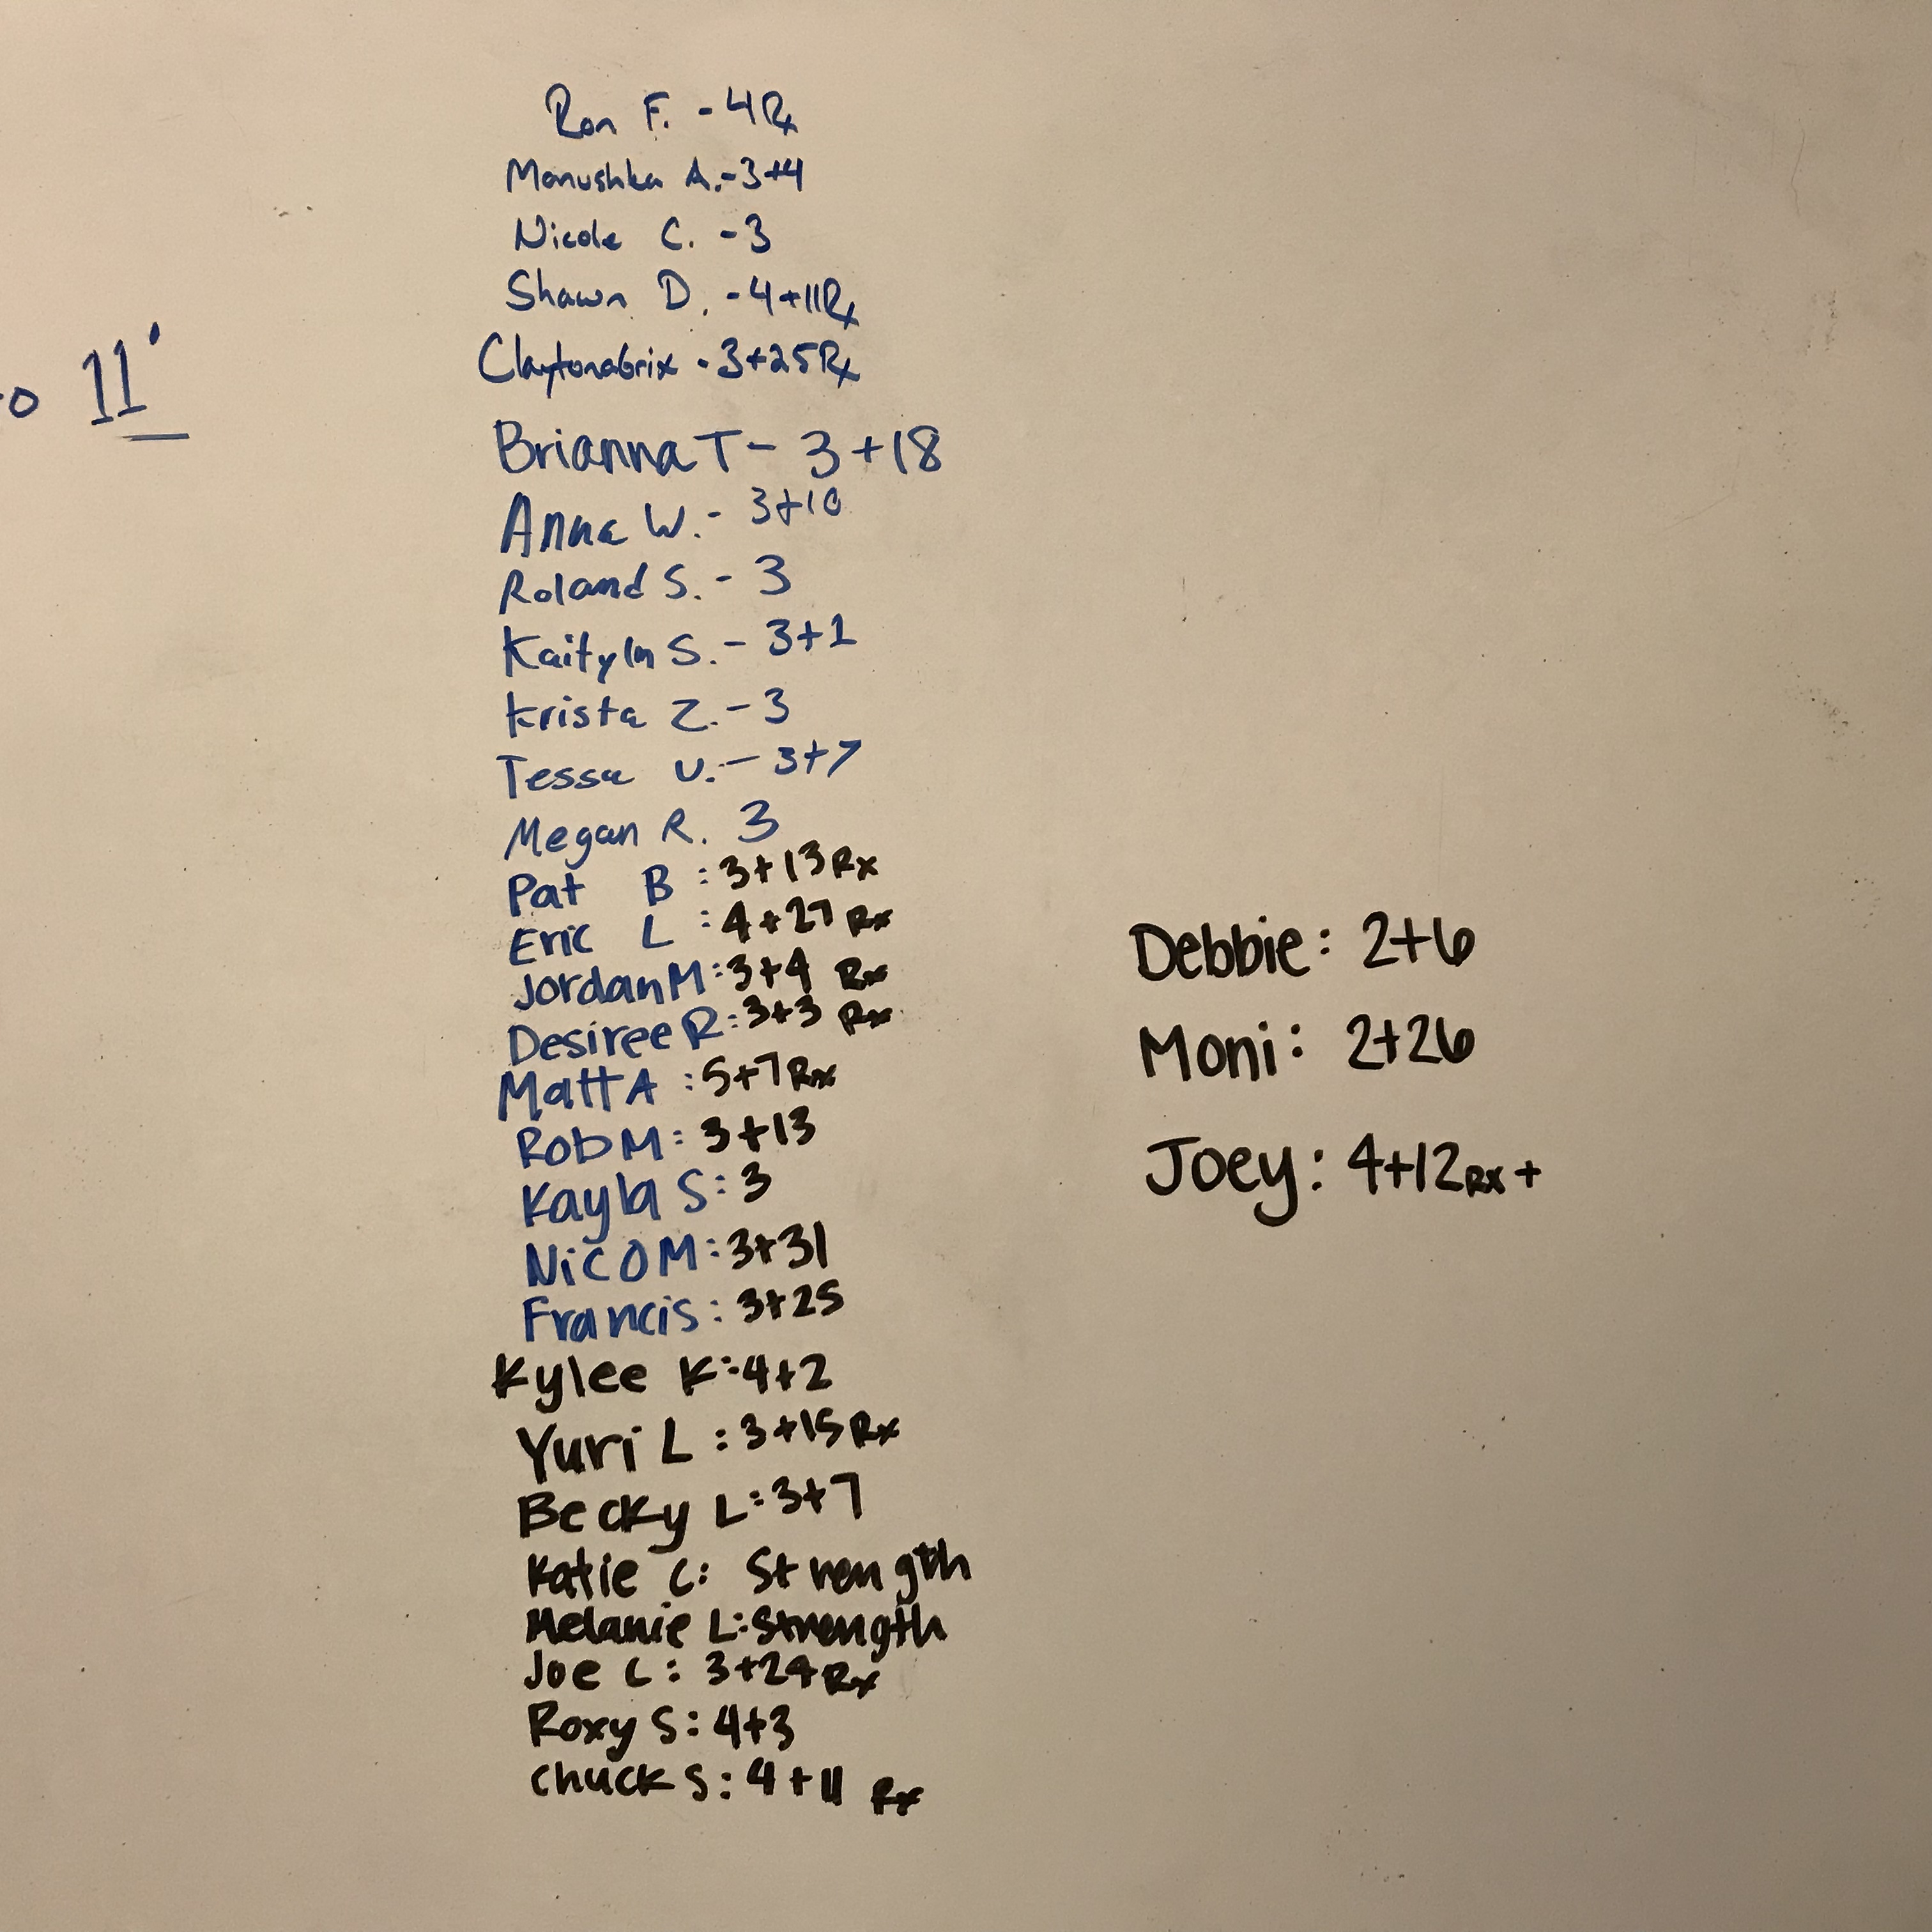 o 11'
Ron F. - 4Rx
Manushka A. - 3+4
Nicole C. - 3
Shawn D. - 4+11Rx
Claytonabrix - 3+25Rx
Brianna T - 3+18
Anna W. - 3+10
Roland S. - 3
Kaityln S. - 3+1
Krista Z. - 3
Tessa U. - 3+7
Megan R. 3
Pat B : 3+13 Rx
Eric L : 4+27 Rx
Jordan M : 3+4 Rx
Desiree R : 3+3 Rx
Matt A : 5+7 Rx
Rob M : 3+13
Kayla S : 3
Nico M : 3+31
Francis : 3+25
Kylee K : 4+2
Yuri L : 3+15 Rx
Becky L : 3+7
Katie C : Strength
Melanie L : Strength
Joe C : 3+24 Rx
Roxy S : 4+3
Chuck S : 4+11 Rx
Debbie : 2+6
Moni : 2+26
Joey : 4+12 Rx +